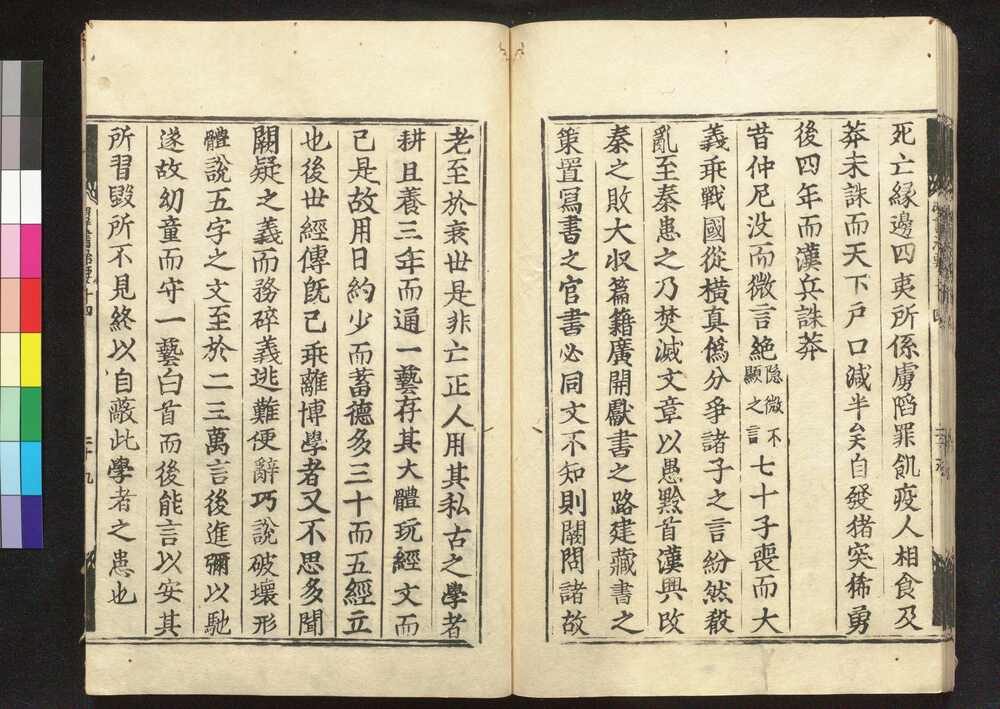 死亡縁邊四夷所係虜陷罪飢疫人相食及
莽未誅而天下戶口減半矣自發猪突豨勇
後四年而漢兵誅莽
昔仲尼没而微言絶隐微不顯之言七十子喪而大
義乖戰國從橫真僞分爭諸子之言紛然殽
亂至秦患之乃焚滅文章以愚黔首漢興改
秦之敗大収篇籍廣開獻書之路建藏書之
策置寫書之官書必同文不知則闕問諸故
老至於衰世是非亡正人用其私古之學者
耕且養三年而通一藝存其大體玩經文而
已是故用日約少而蓄德多三十而五經立
也後世經傳旣已乖離博學者又不思多聞
闕疑之義而務碎義逃難便辭巧說破壞形
體說五字之文至於二三萬言後進彌以馳
遂故幼童而守一藝白首而後能言以安其
所習毀所不見終以自蔽此學者之患也